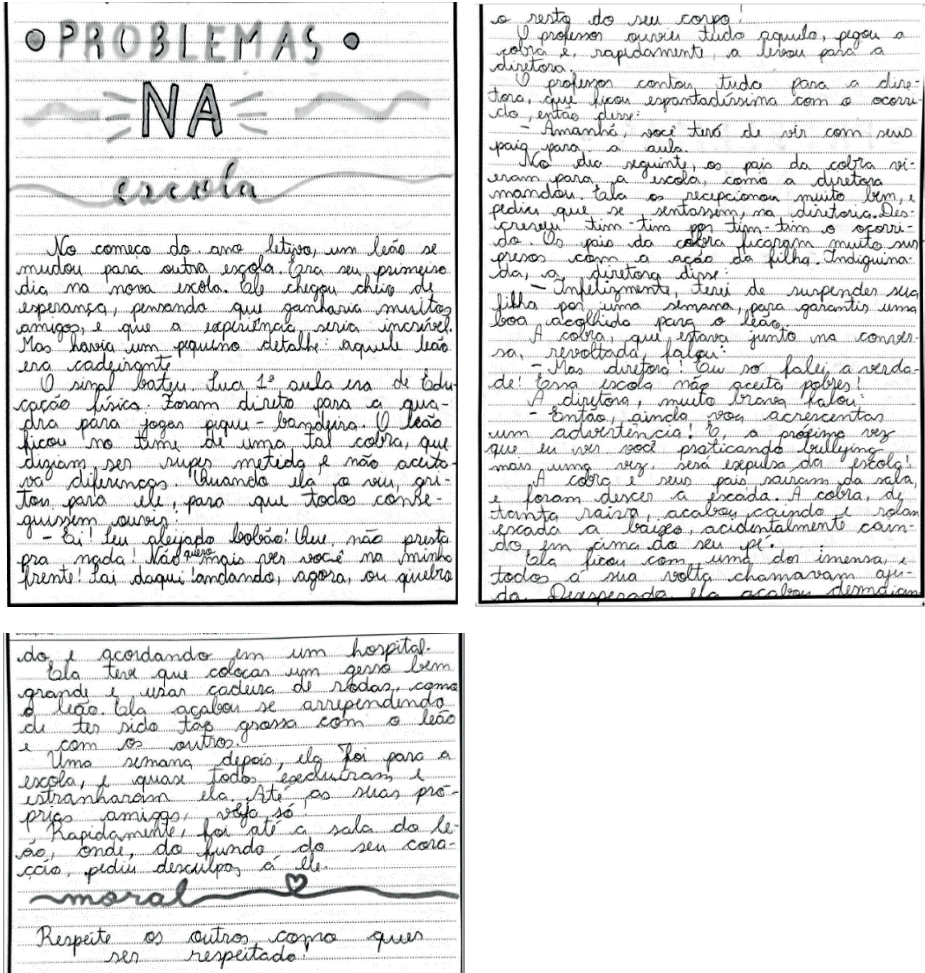 PROBLEMAS
NA
escola
No começo do ano letivo, um leão se
mudou para outra escola. Era seu primeiro
dia na nova escola. Ele chegou cheio de
esperança, pensando que ganharia muitos
amigos, e que a experiência seria incrível.
Mas havia um pequeno detalhe: aquele leão
era cadeirante.
O sinal bateu. Sua 1ª aula era de Edu-
cação física. Foram direto para a qua-
dra para jogar pique-bandeira. O leão
ficou no time de uma tal cobra, que
diziam ser super metida e não aceita-
va diferenças. Quando ela o viu, gri-
tou para ele, para que todos conse-
guissem ouvir:
- Ei! Seu aleijado bobão! Que, não presta
pra nada! Não quero mais ver você na minha
frente! Sai daqui andando, agora, ou quebro
o resto do seu corpo!
O professor ouviu tudo aquilo, pegou a
cobra e, rapidamente, a levou para a
diretora.
O professor contou tudo para a dire-
tora, que ficou espantadíssima com o ocorri-
do, então disse:
- Amanhã, você terá de vir com seus
pais para a aula.
No dia seguinte, os pais da cobra vi-
eram para a escola, como a diretora
mandou. Ela os recepcionou muito bem, e
pediu que se sentassem, na diretoria. Des-
creveu tim-tim por tim-tim o ocorri-
do. Os pais da cobra ficaram muito sur
presos com a ação da filha. Indiguina-
da, a diretora disse:
- Infelizmente, terei de suspender sua
filha por uma semana, para garantir uma
boa acolhida para o leão.
A cobra, que estava junto na conver-
sa, revoltada, falou:
- Mas diretora! Eu só falei a verda-
de! Essa escola não aceita pobres!
A diretora, muito brava falou:
- Então, ainda vou acrescentar
um advertência! E a próxima vez
que eu ver você praticando bullying
mais uma vez será expulsa da escola!
A cobra e seus pais sairam da sala,
e foram descer a escada. A cobra, de
tanta raiva, acabou caindo e rolan
escada a baixo, acidentalmente cain-
do em cima do seu pé.
Ela ficou com uma dor imensa, e
todos a sua volta chamavam aju-
da. Desesperada ela acabou desmaian
do, e acordando em um hospital.
Ela teve que colocar um gesso bem
grande e usar cadeira de rodas, como
o leão. Ela acabou se arrependendo
de ter sido tão grossa com o leão
e com os outros.
Uma semana depois, ela foi para a
escola, e quase todos excluiram e
estranharam ela. Até as suas pró-
prias amigas, veja só!
Rapidamente, foi até a sala do le-
ão, onde, do fundo do seu cora-
ção, pediu desculpas á ele.
moral
Respeite os outros como quer
ser respeitado!